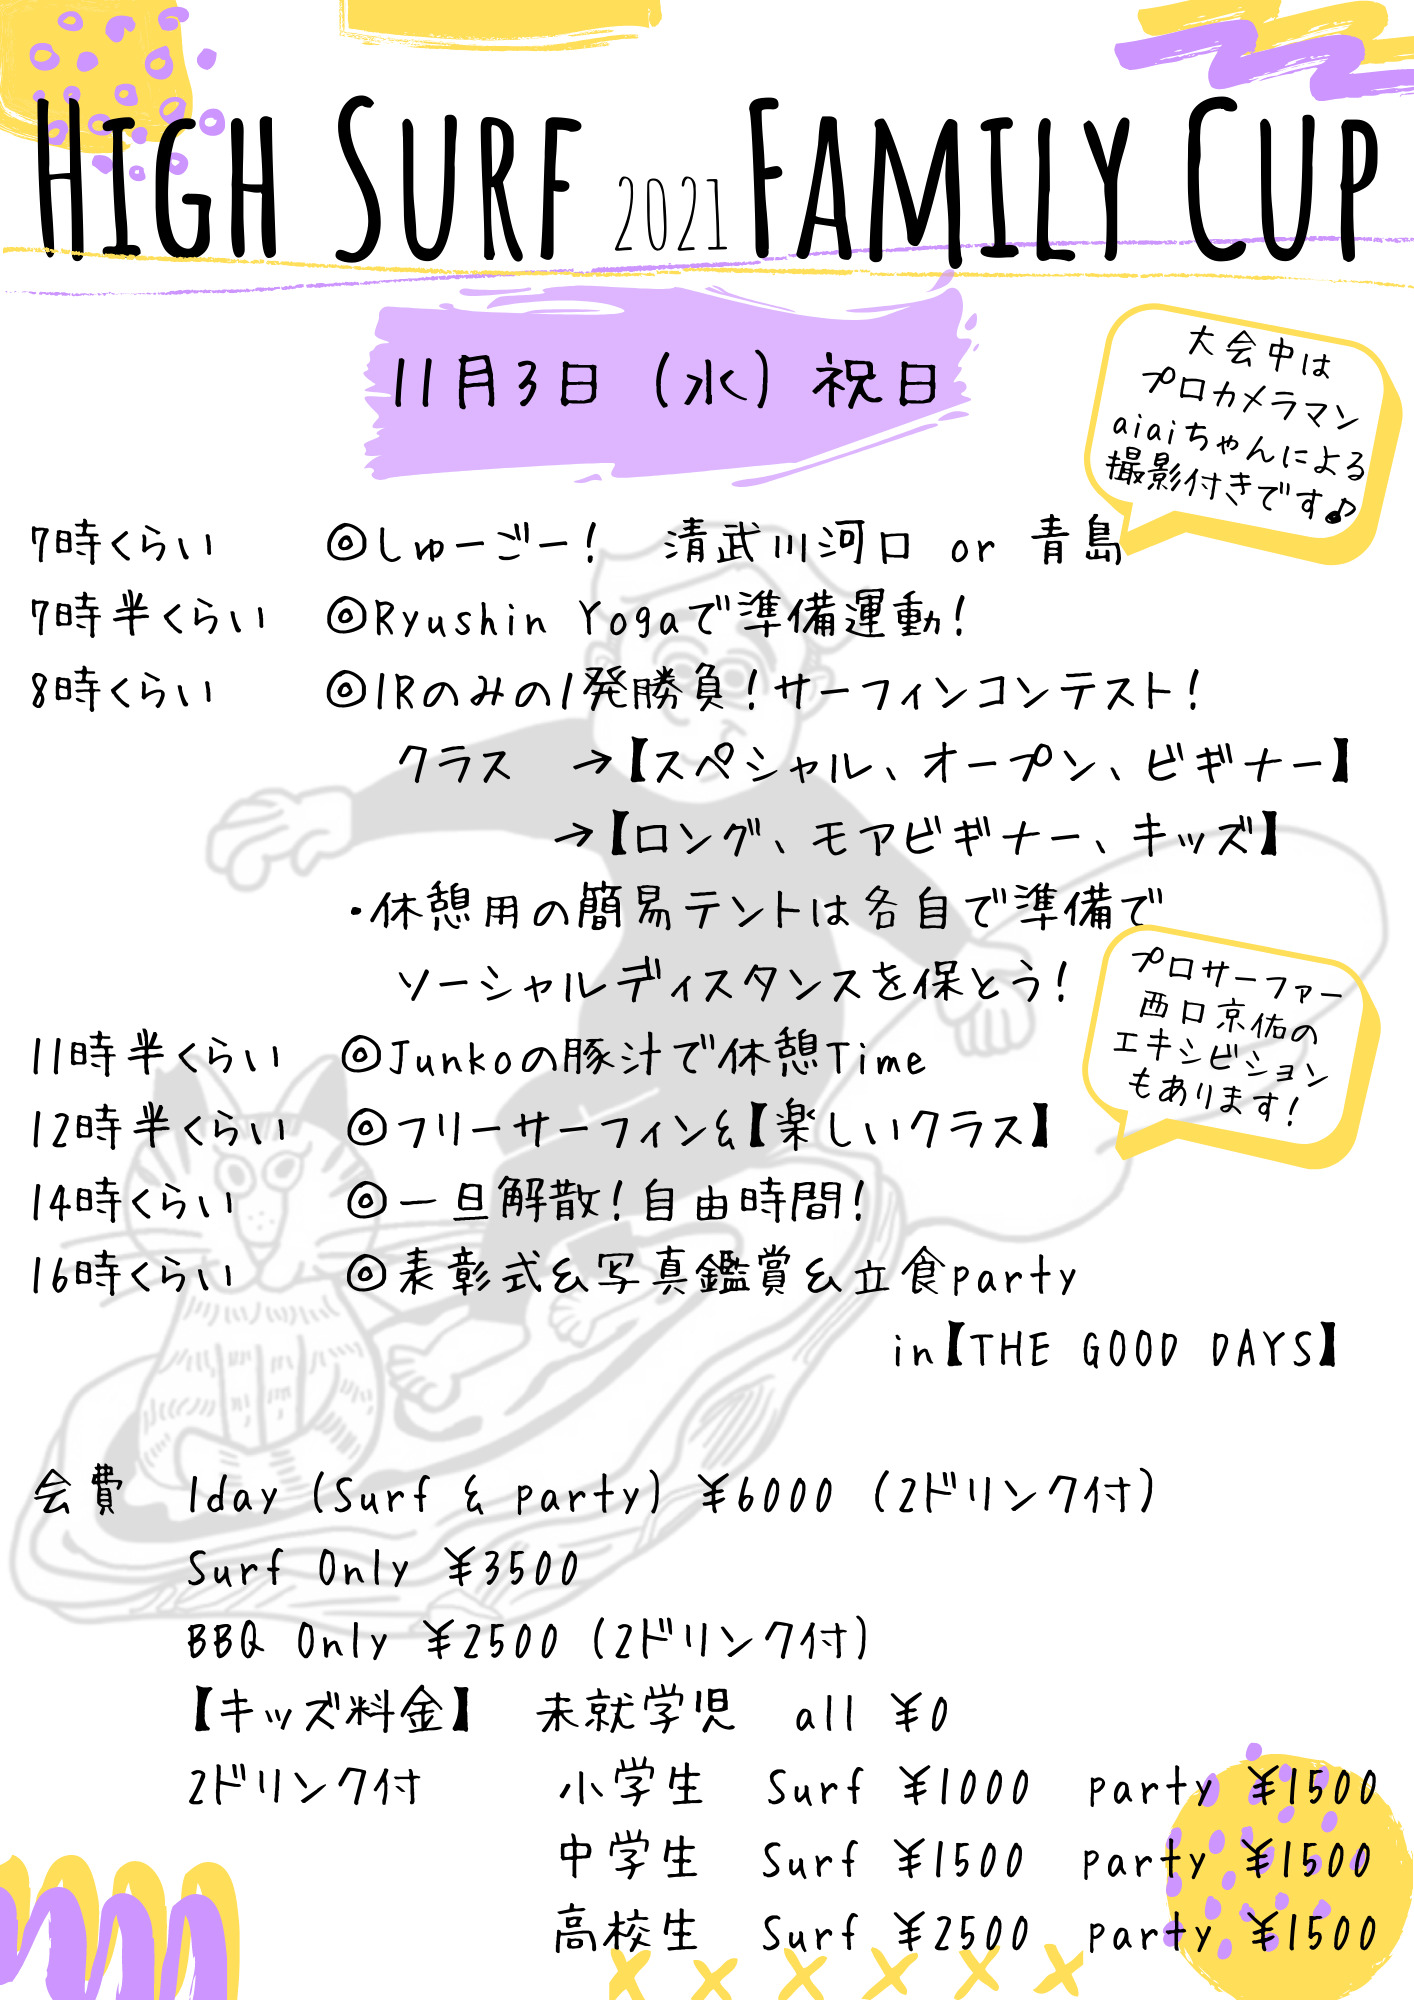 HIGH SURF 2021 FAMILY CUP
11月3日（水）祝日
大会中は
プロカメラマン
aiaiちゃんによる
撮影付きです♪
7時くらい ◎しゅーごー！ 清武川河口 or 青島
7時半くらい ◎Ryushin Yogaで準備運動！
8時くらい ◎1Rのみの1発勝負！サーフィンコンテスト！
クラス →【スペシャル、オープン、ビギナー】
→【ロング、モアビギナー、キッズ】
・休憩用の簡易テントは各自で準備で
ソーシャルディスタンスを保とう！
プロサーファー
西口京佑の
エキシビション
もあります！
11時半くらい ◎Junkoの豚汁で休憩Time
12時半くらい ◎フリーサーフィン&【楽しいクラス】
14時くらい ◎一旦解散！自由時間！
16時くらい ◎表彰式&写真鑑賞&立食party
in【THE GOOD DAYS】
会費 1day (Surf & party) ¥6000（2ドリンク付）
Surf Only ¥3500
BBQ Only ¥2500（2ドリンク付）
【キッズ料金】 未就学児 all ¥0
2ドリンク付 小学生 Surf ¥1000 party ¥1500
中学生 Surf ¥1500 party ¥1500
高校生 Surf ¥2500 party ¥1500